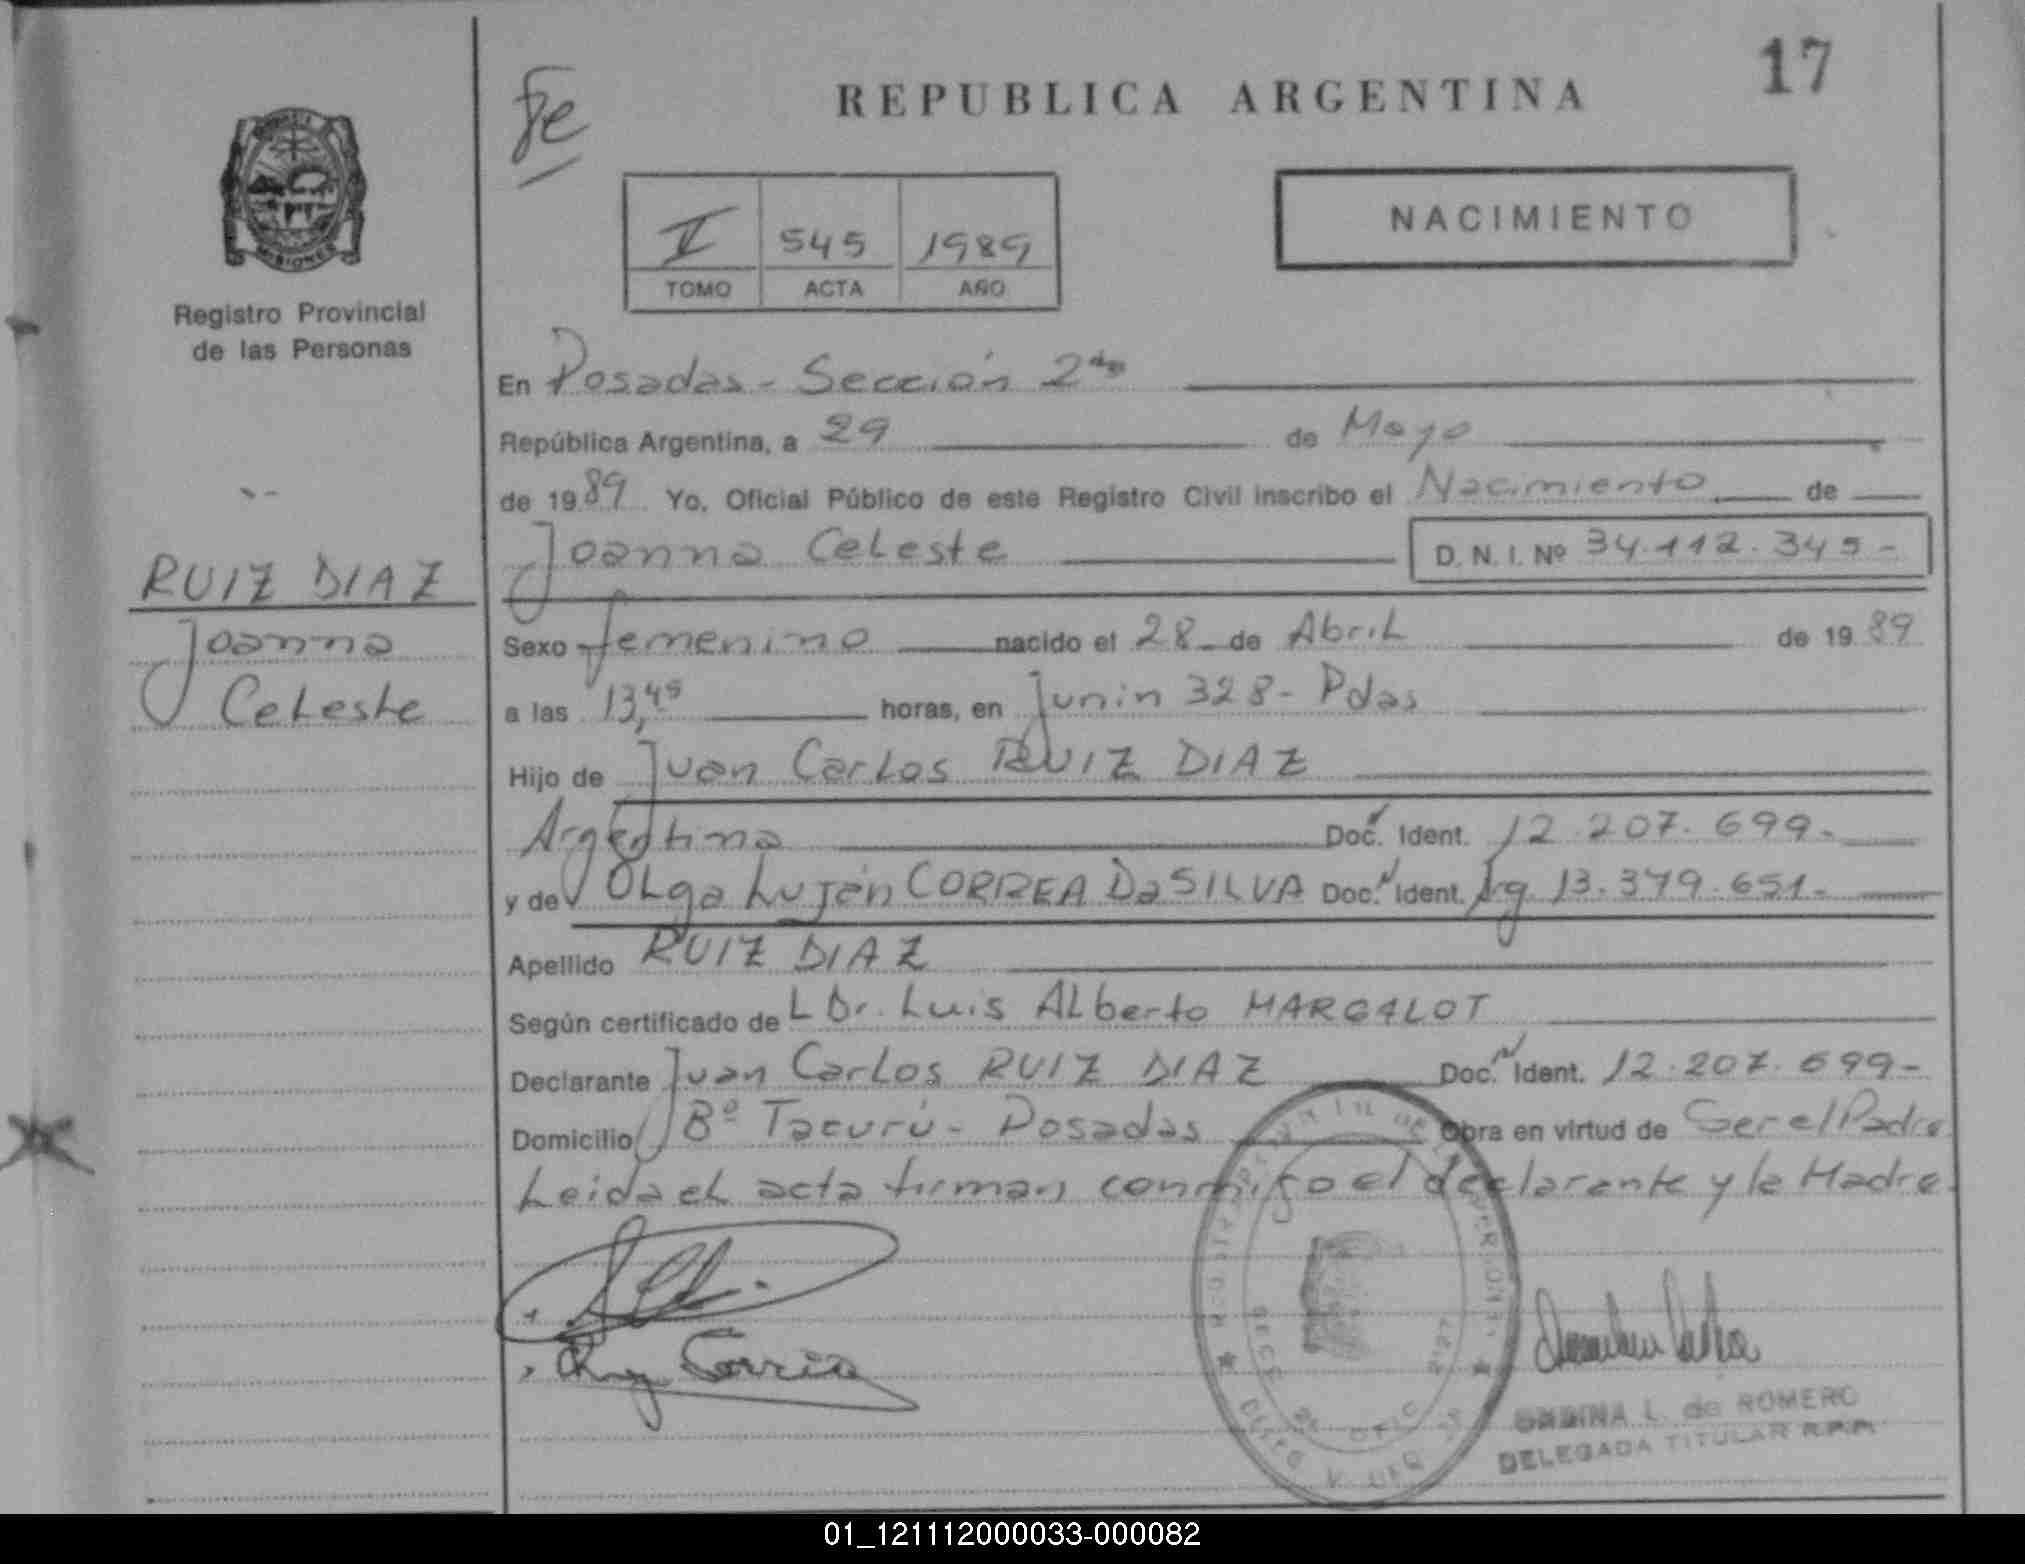 17
REPUBLICA ARGENTINA
fe
NACIMIENTO
V 545 1989
TOMO ACTA AÑO
MISIONES
Registro Provincial
de las Personas
En Posadas - Sección 2da
República Argentina, a 29 de Mayo
de 1989 Yo, Oficial Público de este Registro Civil inscribo el Nacimiento de
Joanna Celeste D. N. I. Nº 34.112.345-
RUIZ DIAZ
Joanna
Celeste
Sexo femenino nacido el 28 de Abril de 1989
a las 13,45 horas, en Junin 328 - Pdas
Hijo de Juan Carlos RUIZ DIAZ
Argentina Doc. Ident. 12.207.699-
y de Olga Luján CORREA Da SILVA Doc. Ident. Arg. 13.379.651-
Apellido RUIZ DIAZ
Según certificado de L Dr. Luis Alberto MARGALOT
Declarante Juan Carlos RUIZ DIAZ Doc. Ident. 12.207.699-
Domicilio Bº Tacurú - Posadas Obra en virtud de Ser el Padre
Leida el acta firman conmigo el declarante y la Madre.
Correa
L. de ROMERO
DELEGADA TITULAR R.P.P.
01_121112000033-000082